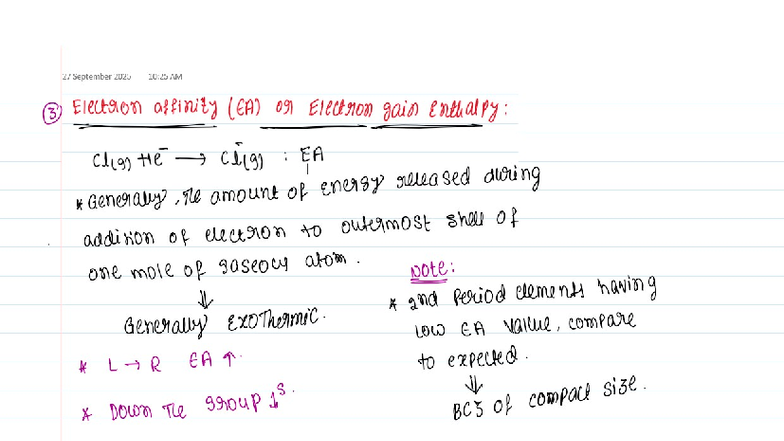 27 September 2025 10:25 AM
③ Electron affinity (EA) or Electron gain Enthalpy:
Cl(g) + e⁻ ⟶ Cl⁻(g) : EA
* Generally, the amount of energy released during
addition of electron to outermost shell of
one mole of gaseous atom.
⇓
Generally Exothermic.
* L → R EA ↑.
* Down the group ↓s.
Note:
* 2nd Period elements having
low EA value, compare
to expected.
⇓
BCз of compact size.